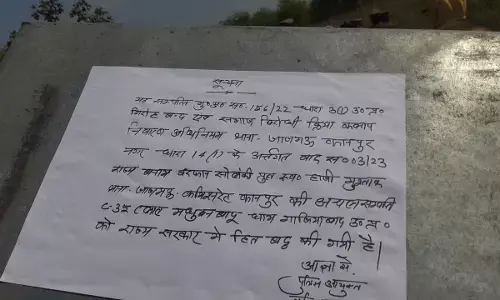 सूचना
यह सम्पत्ति मु०अ०सं० 156/22 धारा 3(1) उ०प्र०
गिरोह बन्द एवं समाज विरोधी क्रिया कलाप
निवारण अधिनियम थाना- जाजमऊ कानपुर
नगर धारा 14(1) के अंतर्गत वाद सं० 003/23
राज्य बनाम इरफान सोलंकी पुत्र स्व० हाजी मुश्ताक
थाना- जाजमऊ- कमिश्नरेट कानपुर की अचल सम्पत्ति
मधुबन बापू धाम गाजियाबाद उ०प्र०
को राज्य सरकार के हित बद्ध की गयी है।
आज्ञा से
पुलिस आयुक्त